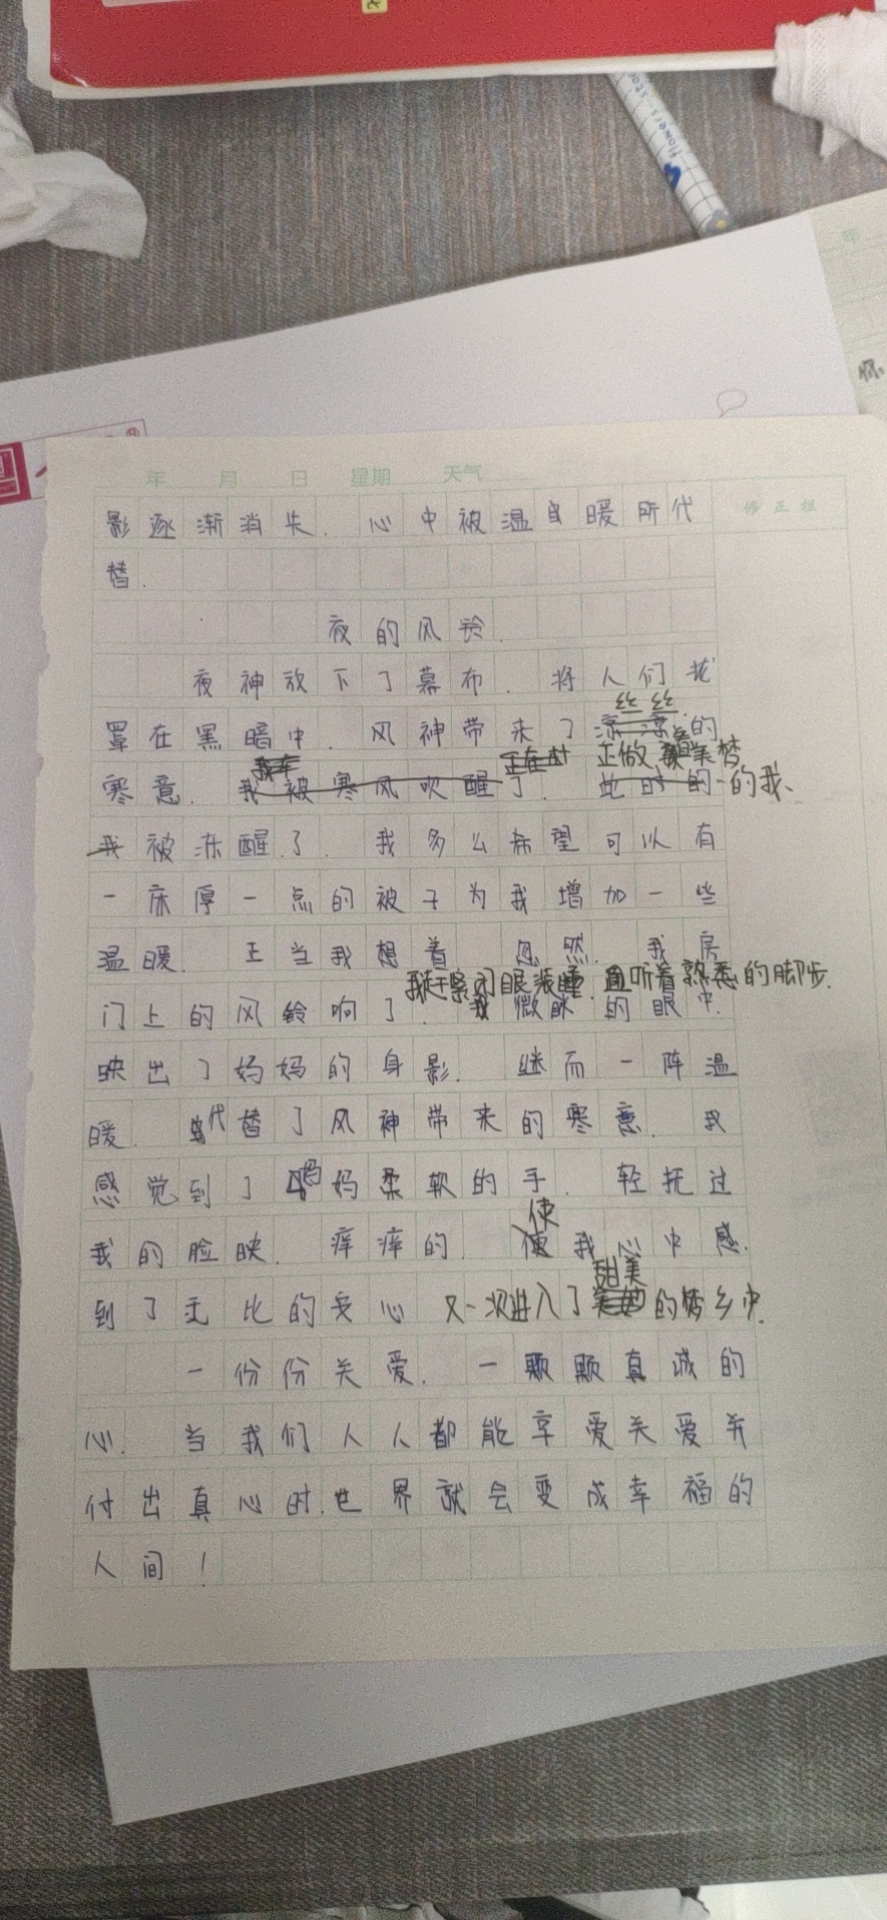 Flowers
年
你
年 月 日 星期 天气
修正栏
影逐渐消失.心中被温自暖所代
替.
夜的风铃.
夜神放下了幕布.将人们笼
丝丝
罩在黑暗中.风神带来了凉凉的
正做着美梦
寒意.我被寒风吹醒了.此时的的我、
我被冻醒了.我多么希望可以有
一床厚一点的被子为我增加一些
温暖.正当我想着 忽然.我房
我赶紧闭眼装睡.听着熟悉的脚步.
门上的风铃响了.我微眯的眼中.
映出了妈妈的身影.继而一阵温
暖.代替了风神带来的寒意.我
感觉到了妈妈柔软的手.轻抚过
使
我的脸映.痒痒的.我心中感.
甜美
到了无比的安心 又一次进入了的梦乡中.
一份份关爱.一颗颗真诚的
心.当我们人人都能享爱关爱并
付出真心时.世界就会变成幸福的
人间!